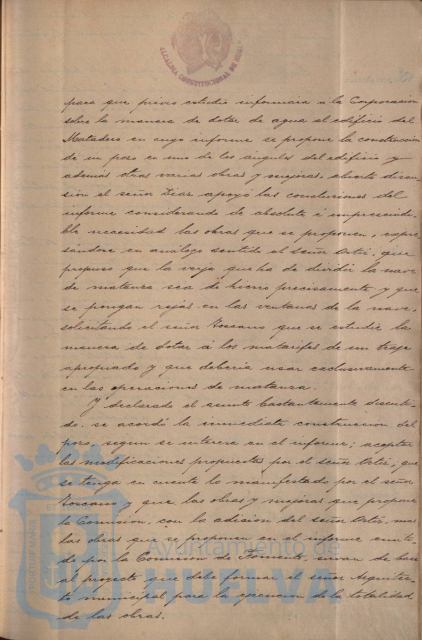 ALCALDIA CONSTITUCIONAL DE HUELVA
para que previo estudio informara a la Corporacion
sobre la manera de dotar de agua al edificio del
Matadero en cuyo informe se propone la construccion
de un pozo en uno de los ángulos del edificio y
además otras varias obras y mejoras, abierta discu-
sion el señor Diaz apoyó las conclusiones del
informe considerando de absoluta é imprescindi-
ble necesidad las obras que se proponen, expre-
sándose en análogo sentido el señor que
propuso que la verja que ha de dividir la nave
de matanza sea de hierro precisamente y que
se pongan rejas en las ventanas de la nave,
solicitando el señor Toscano que se estudie la
manera de dotar á los matarifes de un traje
apropiado y que deberia usar exclusivamente
en las operaciones de matanza.
Y declarado el asunto bastantemente discuti-
do, se acordó la inmediata construccion del
pozo, segun se interesa en el informe; aceptar
las modificaciones propuestas por el señor que
se tenga en cuenta lo manifestado por el señor
Toscano y que las obras y mejoras que propone
la Comision, con la adicion del señor mas
las obras que se proponen en el informe emiti-
do por la Comision de Fomento, sirvan de base
al proyecto que debe formar el señor Arquitec-
to municipal para la ejecucion de la totalidad
de las obras.
Ayuntamiento de
HUELVA